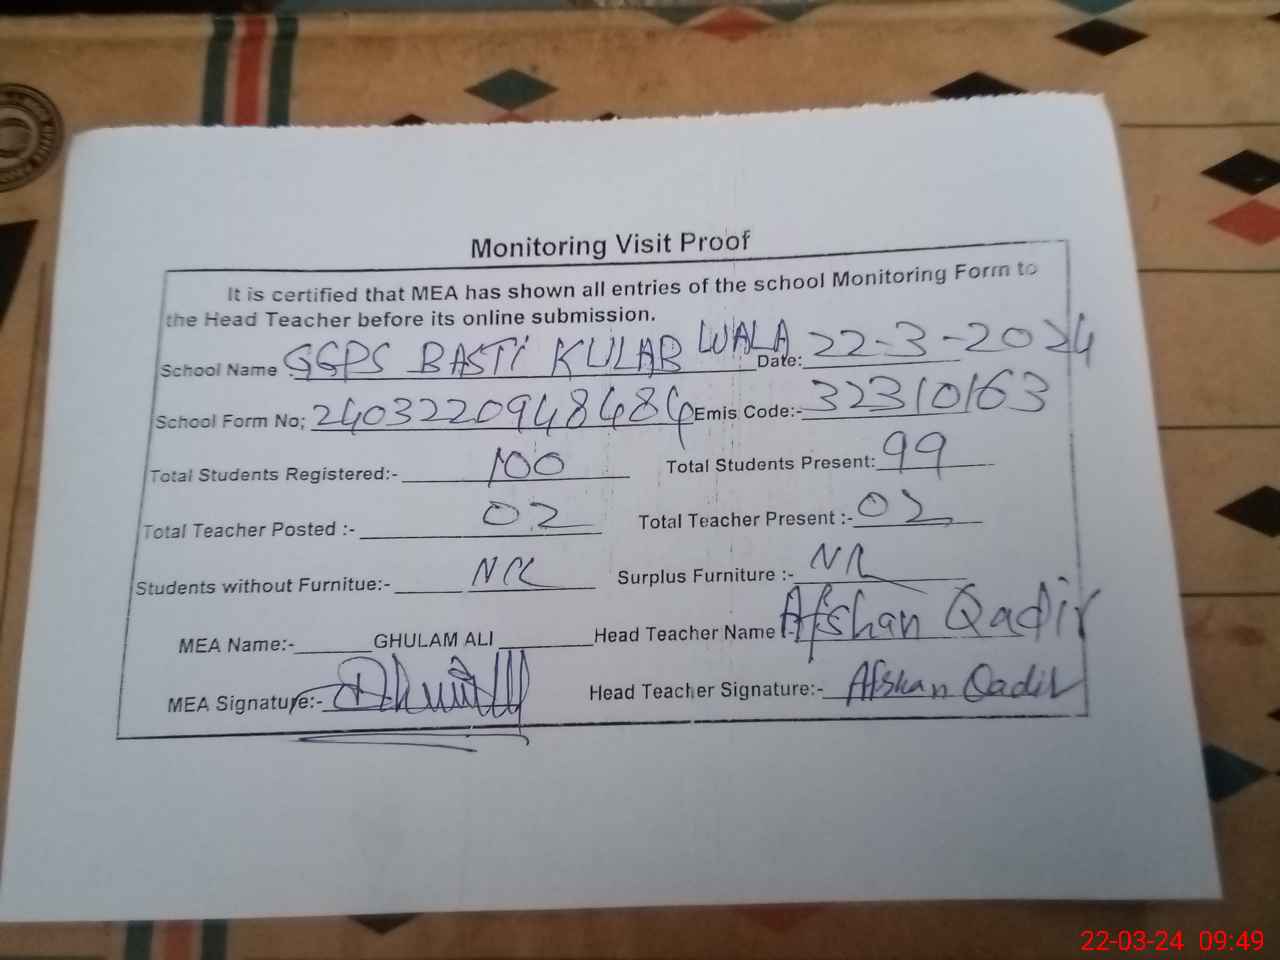 Monitoring Visit Proof
It is certified that MEA has shown all entries of the school Monitoring Form to
the Head Teacher before its online submission.
School Name GGPS BASTI KULAB WALA Date: 22-3-2024
School Form No; 2403220948484 Emis Code:- 32310163
Total Students Registered:- 100 Total Students Present: 99
Total Teacher Posted :- 02 Total Teacher Present :- 02
Students without Furnitue:- Surplus Furniture :-
MEA Name:- GHULAM ALI Head Teacher Name :- Afshan Qadir
MEA Signature:- Head Teacher Signature:- Afshan Qadir
22-03-24 09:49